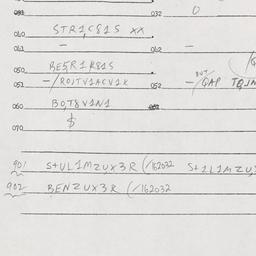 031 032 0
040 STR1,C81S XX
041 - 042 -
050 BE5R1R81S
051 -/ROITV1ACV1X 052 -/GAP
BUT
060 BO,T8V1N1
$
070
901 S+UL1MZUX3R (/162032 S+1L1MZU
902 BENZUX3R (/162032